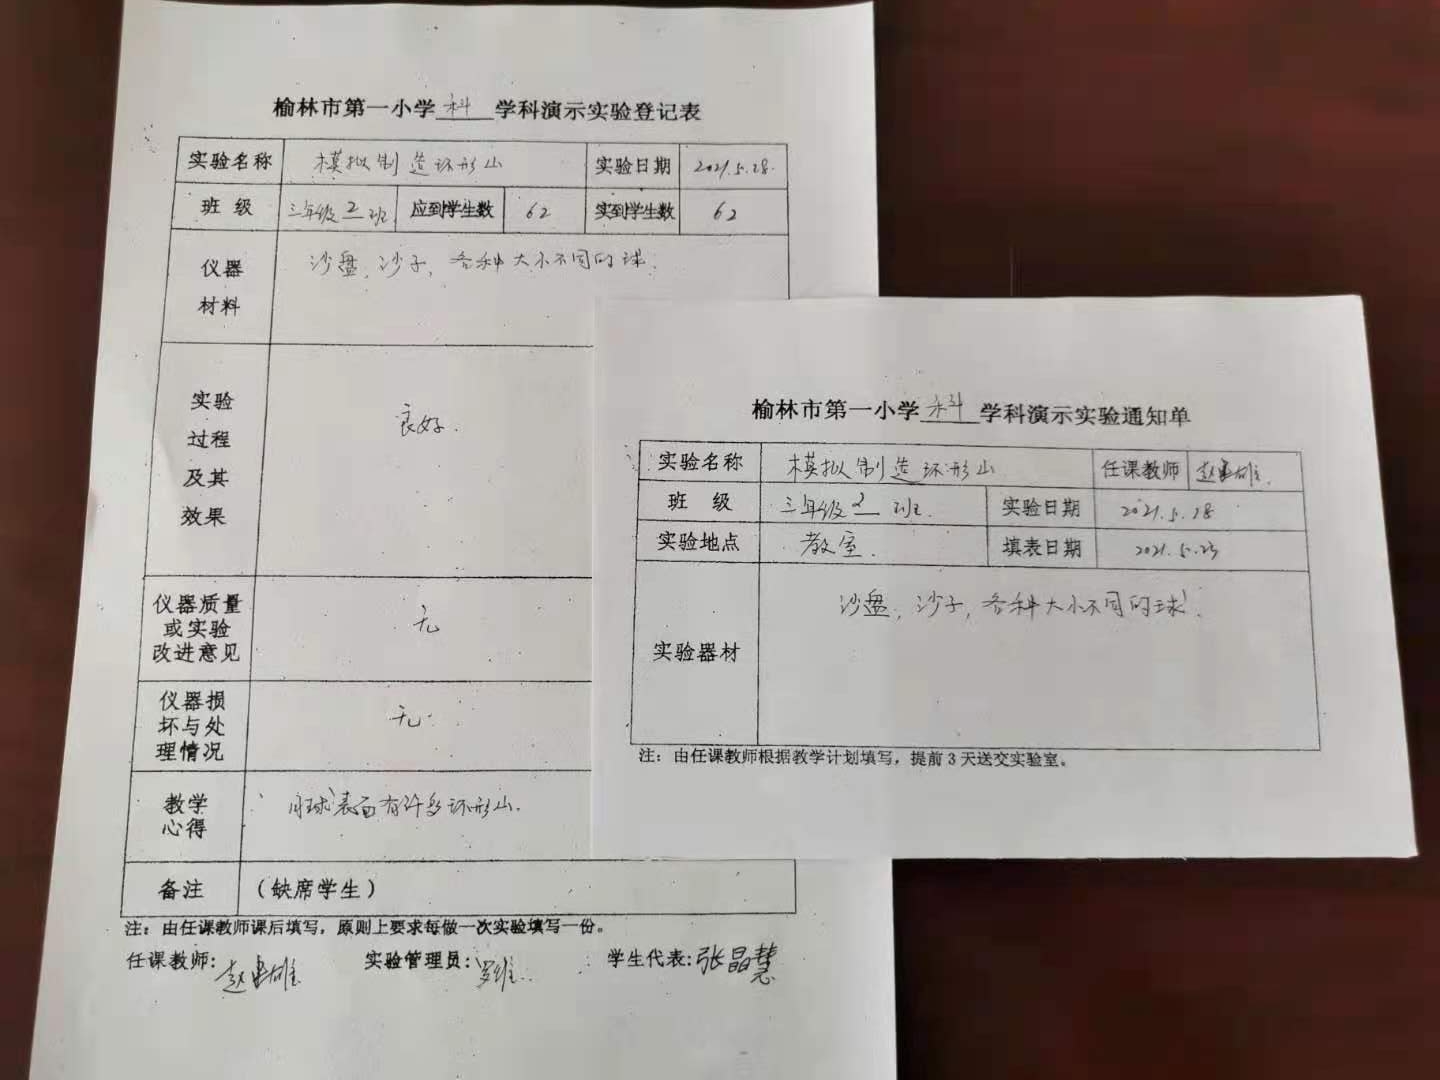 榆林市第一小学科学科演示实验登记表
实验名称 模拟制造环形山 实验日期 2021.5.28.
班 级 三年级2班 应到学生数 62 实到学生数 62
仪器
材料
沙盘,沙子,各种大小不同的球.
实验
过程
及其
效果
良好.
仪器质量
或实验
改进意见
无
仪器损
坏与处
理情况
无.
教学
心得
月球表面有许多环形山.
备注 (缺席学生)
注:由任课教师课后填写,原则上要求每做一次实验填写一份。
任课教师:赵雄 实验管理员:罗维 学生代表:张晶慧
榆林市第一小学科学科演示实验通知单
实验名称 模拟制造环形山 任课教师 赵雄.
班 级 三年级2班. 实验日期 2021.5.28
实验地点 教室. 填表日期 2021.5.23
实验器材 沙盘,沙子,各种大小不同的球.
注:由任课教师根据教学计划填写,提前3天送交实验室。